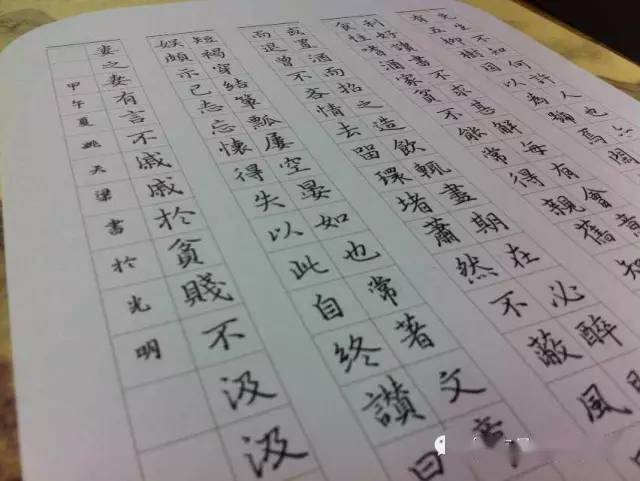 先生不知何許人也
有五柳樹因以為號焉閑
利好讀書不求甚解每有會意
食性嗜酒家貧不能常得親舊知
或置酒而招之造飲輒盡期在必醉
而退曾不吝情去留環堵蕭然不蔽風
短褐穿結簞瓢屢空晏如也常著文章
娛頗示己志忘懷得失以此自終讚曰
婁之妻有言不戚戚於貧賤不汲汲
甲午夏姚天梁書於光明